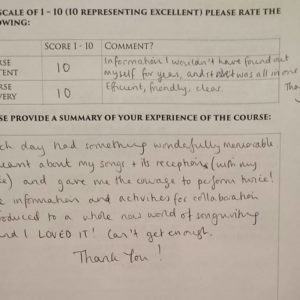 SCALE OF 1 - 10 (10 REPRESENTING EXCELLENT) PLEASE RATE THE
OWING:
SCORE 1 - 10 COMMENT?
RSE TENT 10 Information I wouldn't have found out
myself for years, and it was all in one
RSE VERY 10 Efficient, friendly, clear.
SE PROVIDE A SUMMARY OF YOUR EXPERIENCE OF THE COURSE:
ch day had something wonderfully memorable
about my songs + its reception (with my
) and gave me the courage to perform twice!
e information and activities for collaboration
roduced to a whole new world of songwriting
nd I LOVED IT! Can't get enough.
Thank You!